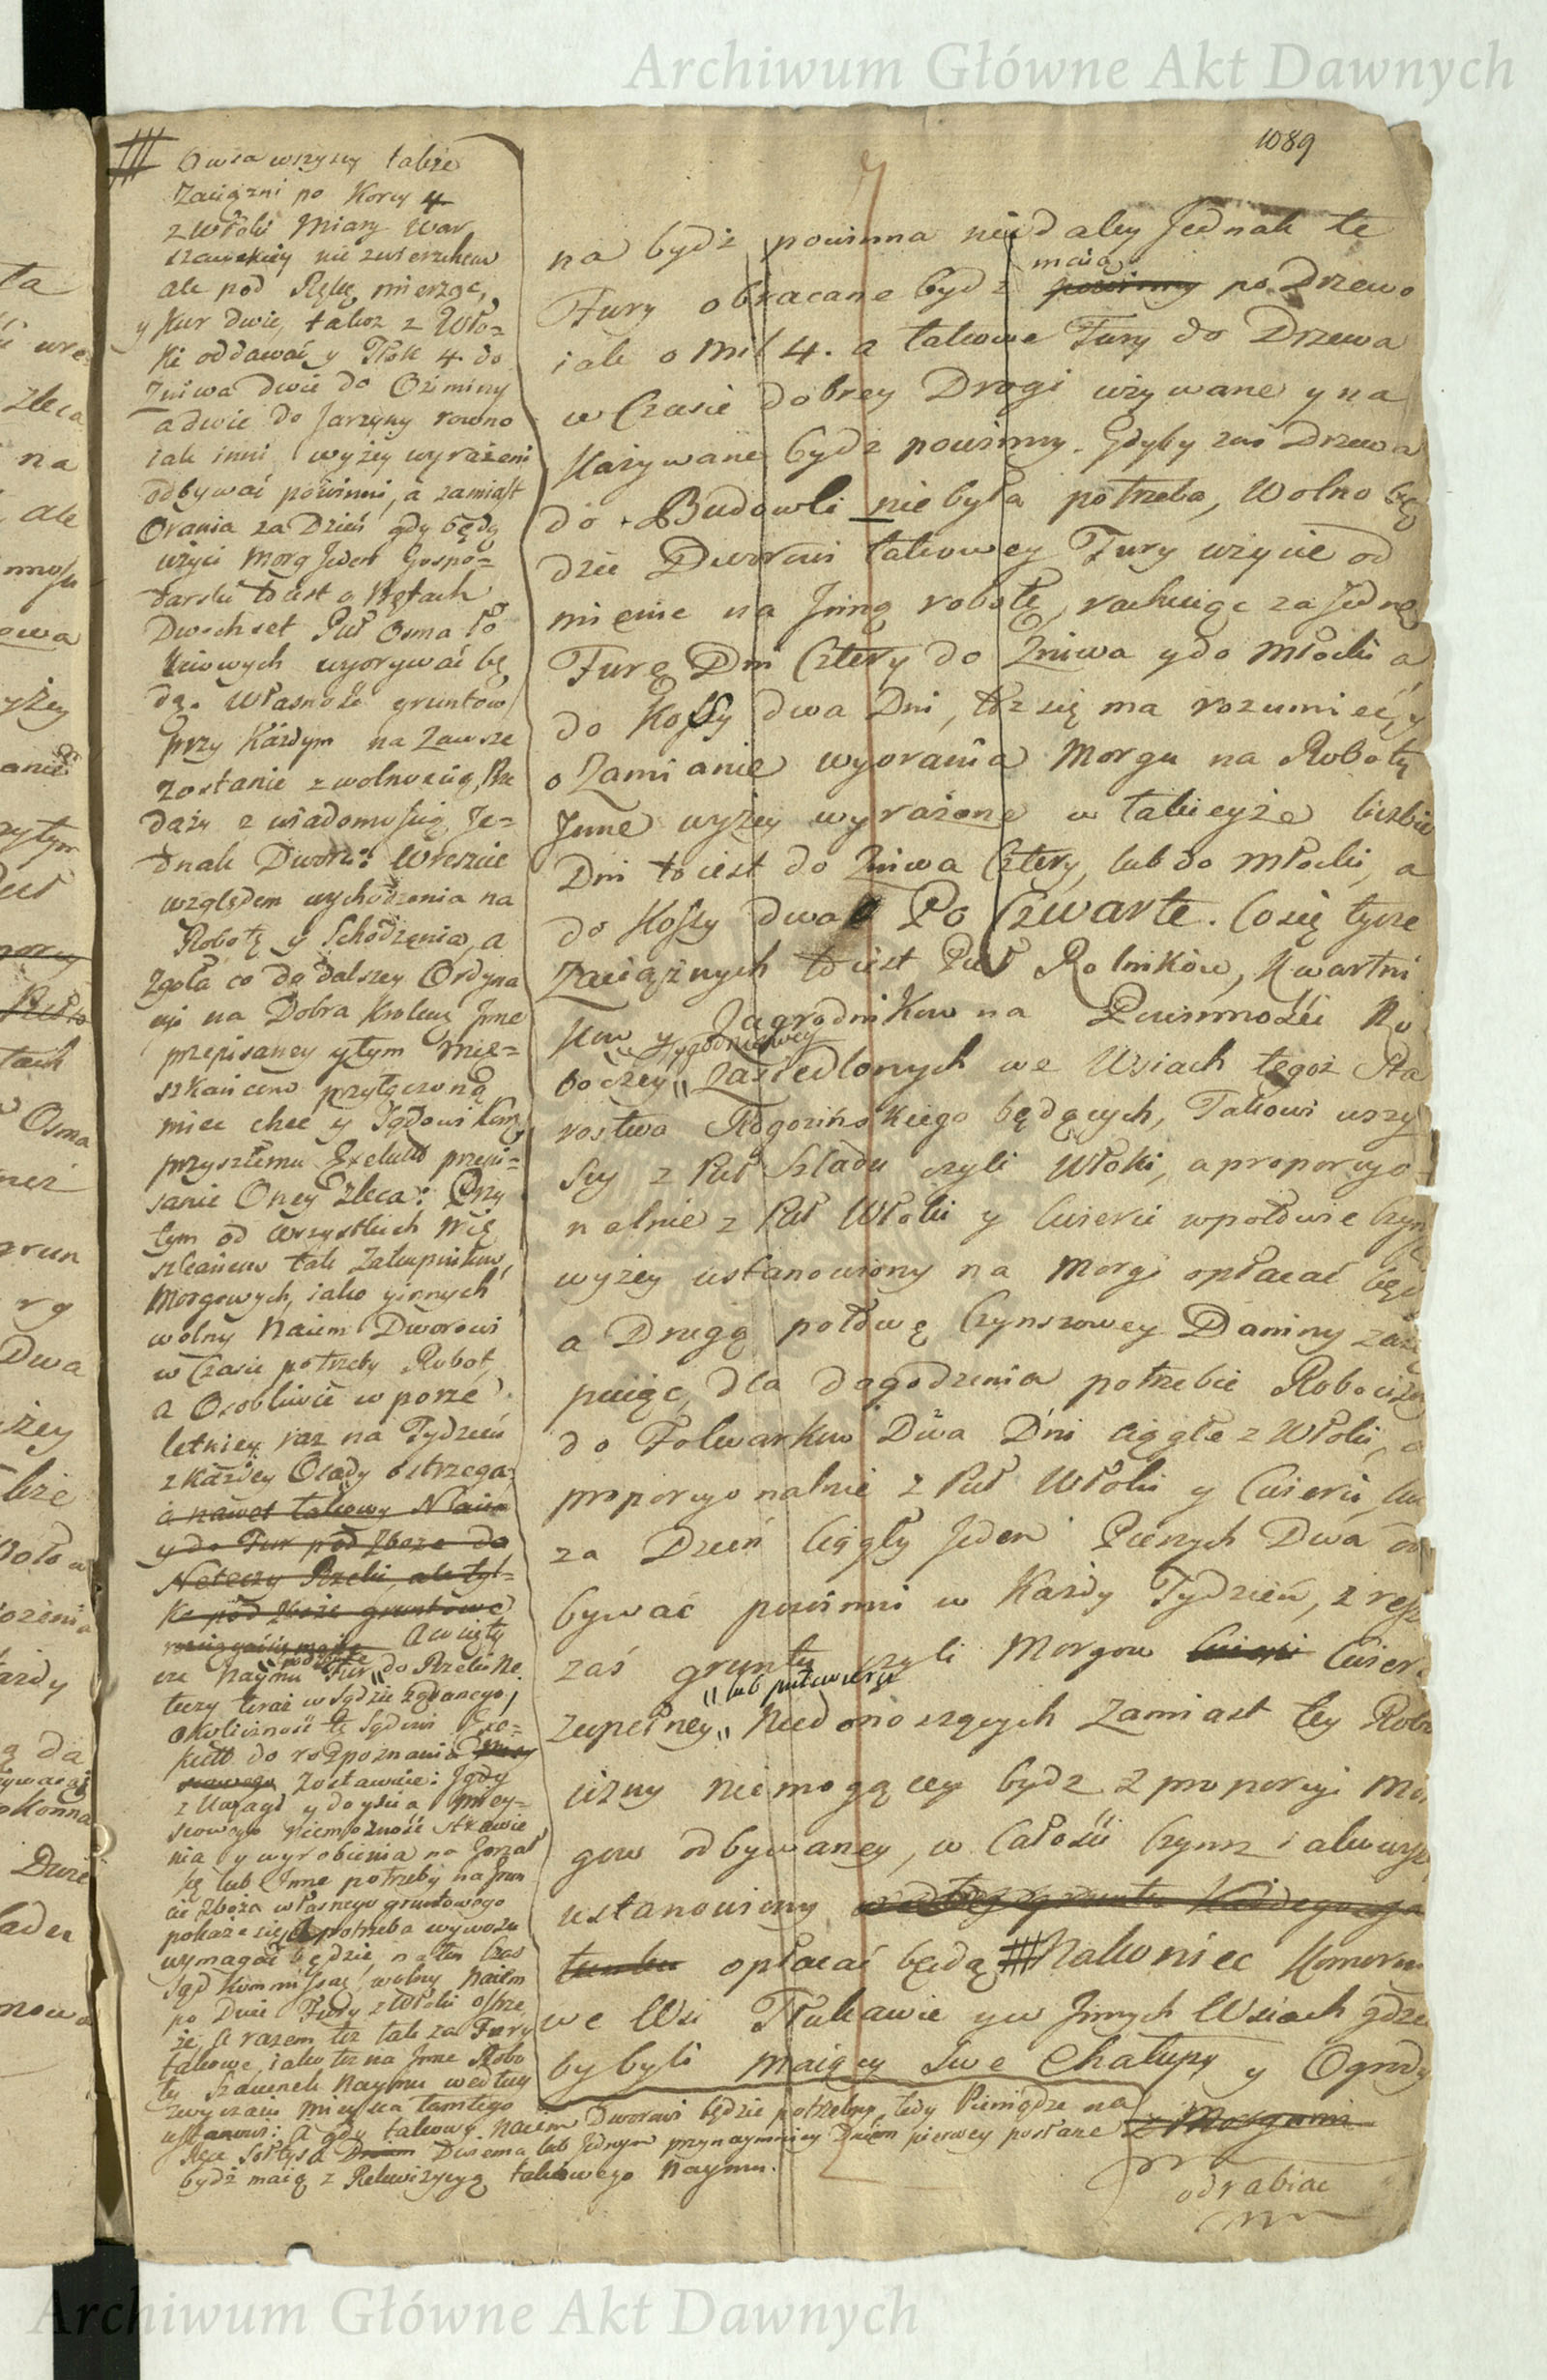 Archiwum Główne Akt Dawnych
1089
Owsa wszyscy także
Zaciężni po Korcy 4
z Włoki Miary War
szawskiey nie z wierzchem
ale pod Rękę mierząc,
y Kur dwie, także z Wło=
ki oddawać y Tłok 4. do
Zniwa dwie do Oziminy
a dwie do Jarzyny rowno
iak inni wyżey wyrażeni
odbywać powinni, a zamiast
Orania za Dzień gdy będą
użyci Morg Jeden Gospo=
darski to iest o Prętach
Dwochset Puł Osma Ło
kciowych wyorywać bę
dą. Własność gruntow
przy Każdym na Zawsze
zostanie z wolnością, Prze
daży z wiadomością Je=
dnak Dworu: Wreszcie
względem wychodzenia na
Robotę y Schodzenia, a
Zgoła co do dalszey Ordyna
cyi na Dobra Krolewskie Jnne
przepisaney y tym mie=
szkańcom przyłączoną
miec chce y Sądowi Kom
przyszłemu Exekutt przepi=
sanie Oney zleca: Przy
tym od wszystkich mie
szkańcow tak Zakupnikow,
Morgowych, iako y innych
wolny Naiem Dworowi
w Czasie potrzeby Robot,
a Osobliwie w porze
letniey raz na Tydzień
z Każdey Osady ostrzega:
a nawet takowy Naiem
y do Fur pod Zboże do
Noteczy Rzeki, ale tyl=
ko pod Zboże gruntowe
rozciągać się maiące A wzięty
pod Zboże
ze Naymu Fur do Rzeki No
teczy teraz w Sądzie żądanego,
okoliczność tę Sądowi Exe=
kutt do rozpoznania
zostawuie: Jgdy
z Uwagi y doyścia miey=
scowego niemożność strawie
nia y wyrobienia na Gorzał
kę lub Jnne potrzeby na grun
cie Zboża własnego gruntowego
pokaże się, a potrzeba wywozu
wymagać będzie, na ten Czas
Sąd Kommissar: wolny Naiem
po Dwie Fury z Włoki ostrze
że, a razem też tak za Fury
takowe, iako też na Jnne Robo
ty Szacunek Naymu według
zwyczaiu mieysca tamtego
ustanowi: A gdy takowy Naiem Dworowi będzie potrzebny, tedy Pieniądze na
Ręce Sołtysa Dwiema lub Jednym przynaymniey Dniem pierwey posłane
bydź maią z Rekwizycyą takowego Naymu.
na bydź powinna nie daley Jednak te
maią
Fury obracane bydź powinny po Drzewo
iak o mil 4. a takowe Fury do Drzewa
w Czasie dobrey Drogi używane y na
kazywane bydź powinny. Gdyby zaś Drzewa
do Budowli nie była potrzeba, Wolno bę
dzie Dworowi takowey Fury użycie od
mienić na Jnną robotę, rachuiąc za Jedną
Furę Dni Cztery do Zniwa y do Młocki a
do Kossy dwa Dni, toż się ma rozumieć, y
o Zamianie wyorania Morgu na Roboty
Jnne wyżey wyrażone w takieyże liczbie
Dni to iest do Zniwa Cztery, lub do Młocki, a
do Kossy dwa Po Czwarte. Co się tycze
Zaciężnych to iest Puł Rolnikow, Kwartni
kow y Zagrodnikow na Powinności Ro
tygodniowey
boczey Zasiedlonych we Wsiach tegoż Sta
rostwa Rogozińskiego będących, Takowi wszy
scy z Puł Szladu czyli Włoki, a proporcyo=
nalnie z Puł Włoki y Cwierci w połowie Czyn
wyżey ustanowiony na Morgi opłacać będ
a Drugą połowę Czynszowey Daniny zastę
puiąc, dla dogodzenia potrzebie Robocizny
do Folwarkow Dwa Dni ciągłe z Włoki, a
proporcyonalnie z Puł Włoki y Cwierci, lub
za Dzień ciągły Jeden Pieszych Dwa od
bywać powinni w Każdy Tydzień, z resz
zaś gruntu czyli Morgow Cwierci Cwierc
lub pułcwierci
zupełney Niedonoszących Zamiast tey Robo
cizny niemogącey bydz z proporcyi Mor
gow odbywaney, w Całości Czynsz iak wyż
ustanowiony
opłacać będą Nakoniec Komornicy
we Wsi Tłukawie y w Jnnych Wsiach gdzie
by byli maiący Swe Chałupy y Ogrody
z Morgami
odrabiac
Archiwum Główne Akt Dawnych